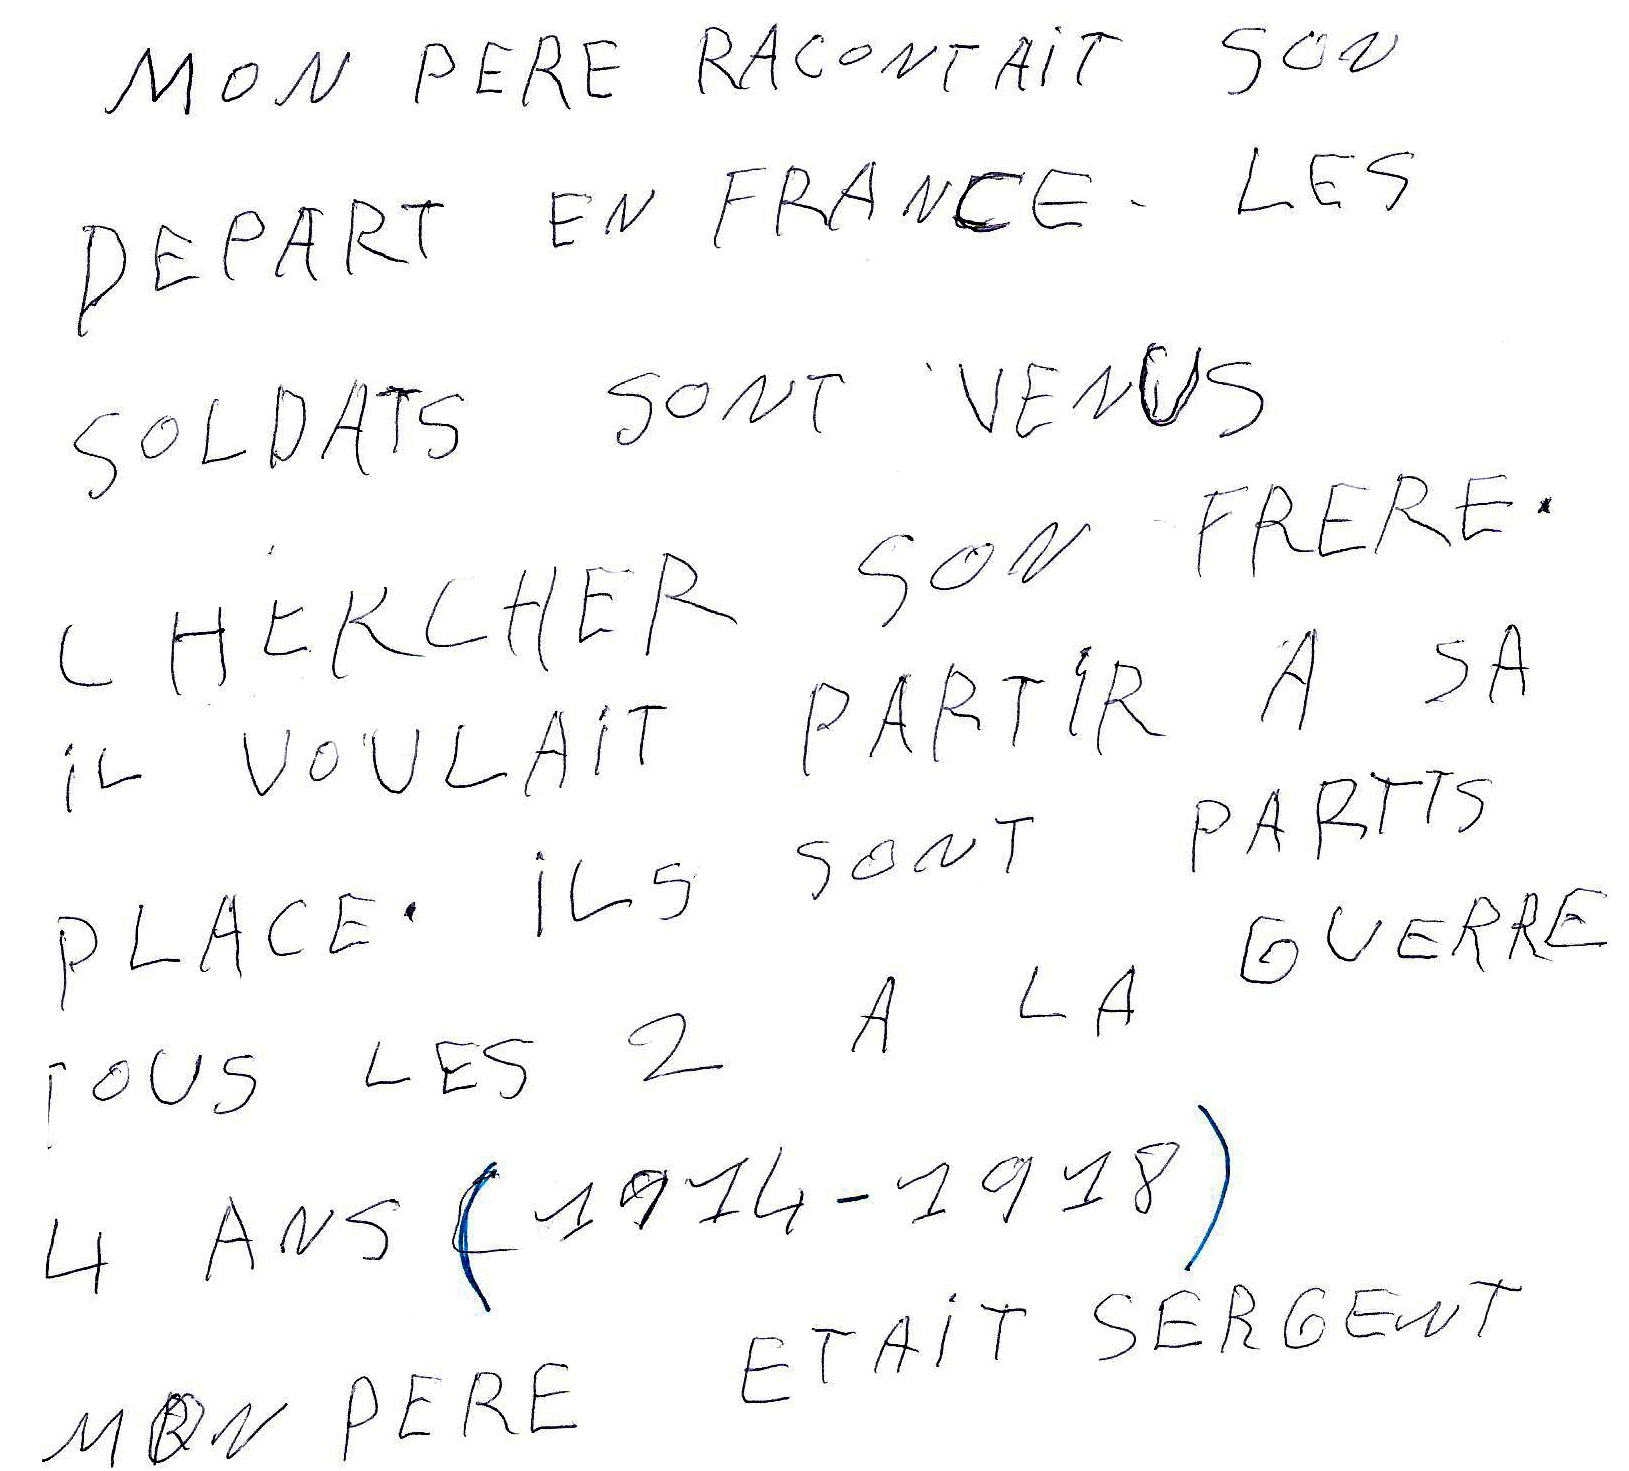 MON PERE RACONTAIT SON
DEPART EN FRANCE. LES
SOLDATS SONT VENUS
CHERCHER SON FRERE.
IL VOULAIT PARTIR A SA
PLACE. ILS SONT PARTIS
TOUS LES 2 A LA GUERRE
4 ANS (1914-1918)
MON PERE ETAIT SERGENT